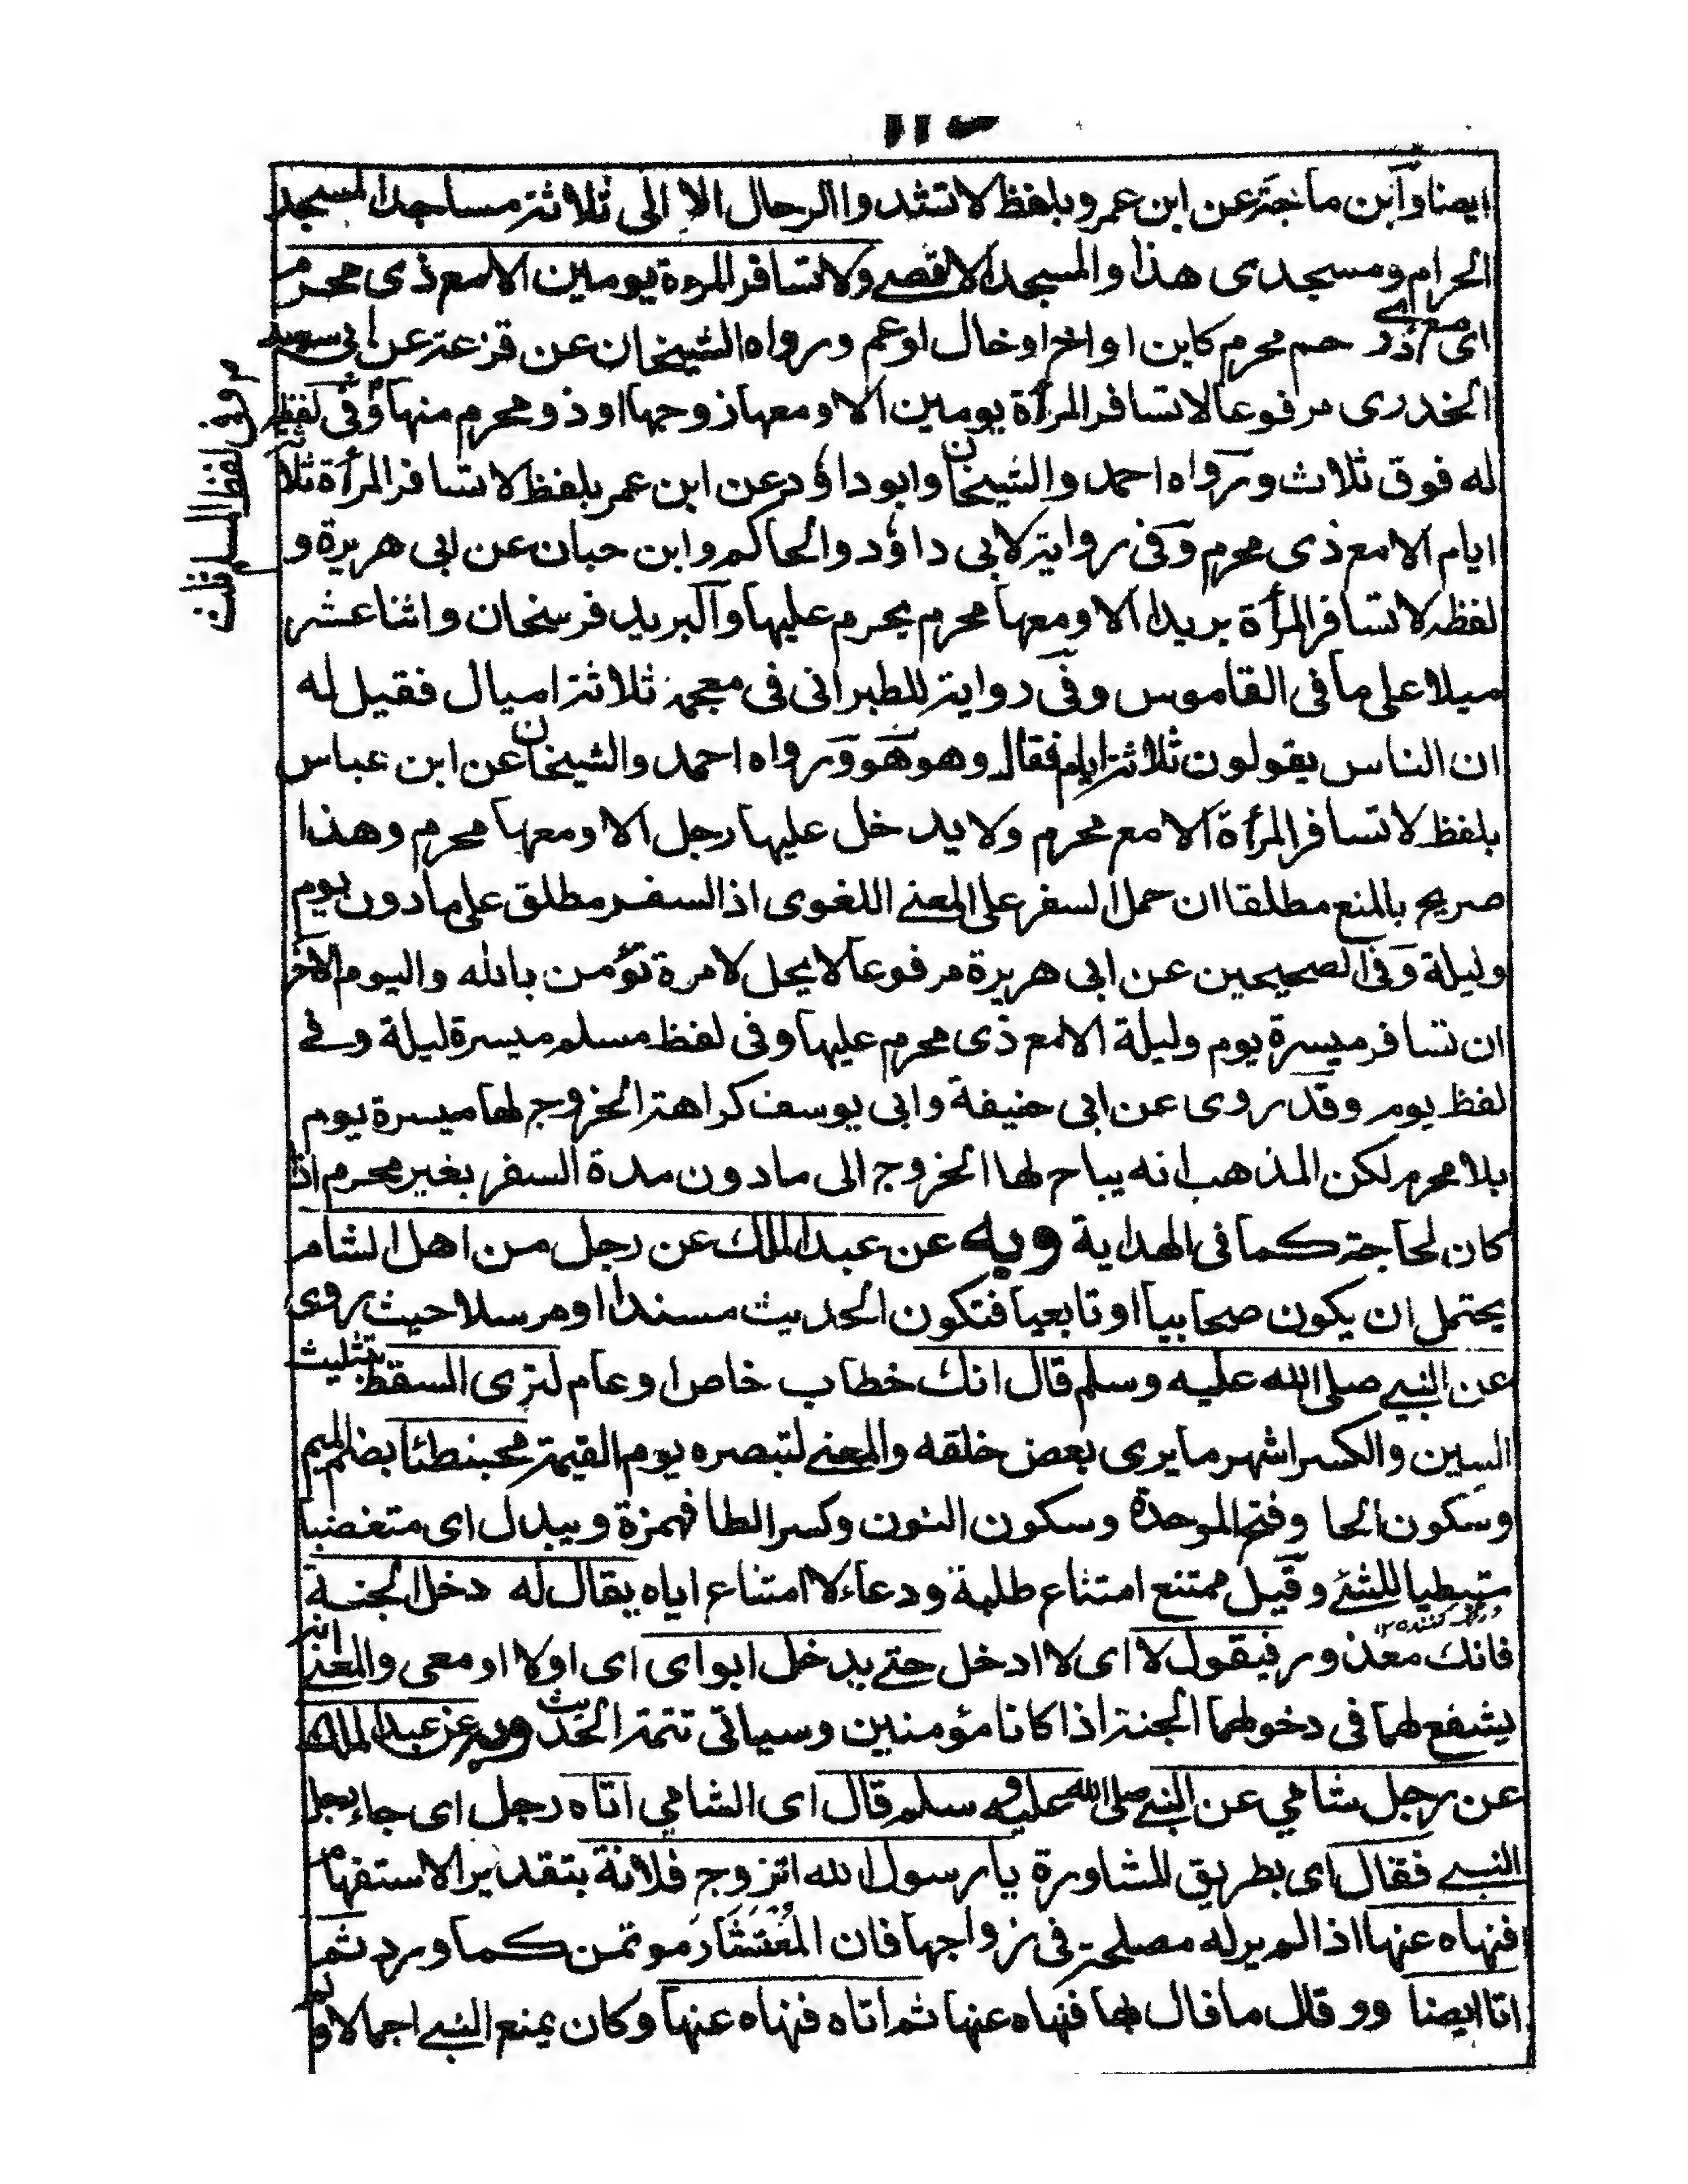 ١١
ايضا وابن ماجة عن ابن عمر وبلفظ لا تشد وا الرحال الا الى ثلاثة مساجد المسجد
الحرام ومسجدى هذا والمسجد الاقصے ولا تسافر المرءة يومين الا مع ذى محرم
اى ذو رحم محرم كابن او اخ او خال او عم ورواه الشيخان عن قزعة عن ابى سعيد
الخدرى مرفوعا لا تسافر المرأة يومين الا ومعها زوجها او ذو محرم منها وفى لفظ
له فوق ثلاث ورواه احمد والشيخان وابو داؤد عن ابن عمر بلفظ لا تسافر المرأة ثلاثة
ايام الا مع ذى محرم وفى رواية لابى داؤد والحاكم وابن حبان عن ابى هريرة و
لفظه لا تسافر المرأة بريدا الا ومعها محرم يحرم عليها والبريد فرسخان واثنا عشر
ميلا على ما فى القاموس وفى رواية للطبرانى فى معجمه ثلاثة اميال فقيل له
ان الناس يقولون ثلاثة ايام فقال وهو هو ورواه احمد والشيخان عن ابن عباس
بلفظ لا تسافر المرأة الا مع محرم ولا يدخل عليها رجل الا ومعها محرم وهذا
صريح بالمنع مطلقا ان حمل السفر على المعنے اللغوى اذ السفر مطلق على ما دون يوم
وليلة وفى الصحيحين عن ابى هريرة مرفوعا لا يحل لامرة تؤمن بالله واليوم الآخر
ان تسافر ميسرة يوم وليلة الا مع ذى محرم عليها وفى لفظ مسلم ميسرة ليلة وفے
لفظ يوم وقد روى عن ابى حنيفة وابى يوسف كراهة الخروج لها ميسرة يوم
بلا محرم لكن المذهب انه يباح لها الخروج الى ما دون مدة السفر بغير محرم اذا
كان لحاجة كما فى الهداية وبه عن عبد الملك عن رجل من اهل الشام
يحتمل ان يكون صحابيا او تابعيا فتكون الحديث مسندا او مرسلا حيث روى
عن النبے صلى الله عليه وسلم قال انك خطاب خاص او عام لترى السقط بتثليث
السين والكسر اشهر ما يرى بعض خلقه والمعنے لتبصره يوم القيمة محبنطئا بضم الميم
وسكون الحا وفتح الموحدة وسكون النون وكسر الطا فهمزة ويبدل اى متغضبا
ستبطيا للشئ وقيل ممتنع امتناع طلبة ودعاء لا امتناع اياه يقال له دخل الجنة
فانك معذور فيقول لا اى لا ادخل حتے يدخل ابواى اى اولا او معى والمعنے انه
يشفع لهما فى دخولهما الجنة اذا كانا مؤمنين وسياتى تتمة الحديث وبه عن عبد الملك
عن رجل شامي عن النبے صلى الله عليه وسلم قال اى الشامي اتاه رجل اى جاء رجل
النبے فقال اى بطريق المشاورة يا رسول الله اتزوج فلانة بتقدير الاستفهام
فنهاه عنها اذا لم ير له مصلحة فى زواجها فان المستشار موتمن كما ورد ثم
اتا ايضا وو قال ما قال لها فنهاه عنها ثم اتاه فنهاه عنها وكان يمنع النبے اجمالا و
م وفى لفظ لمسلم ثلث